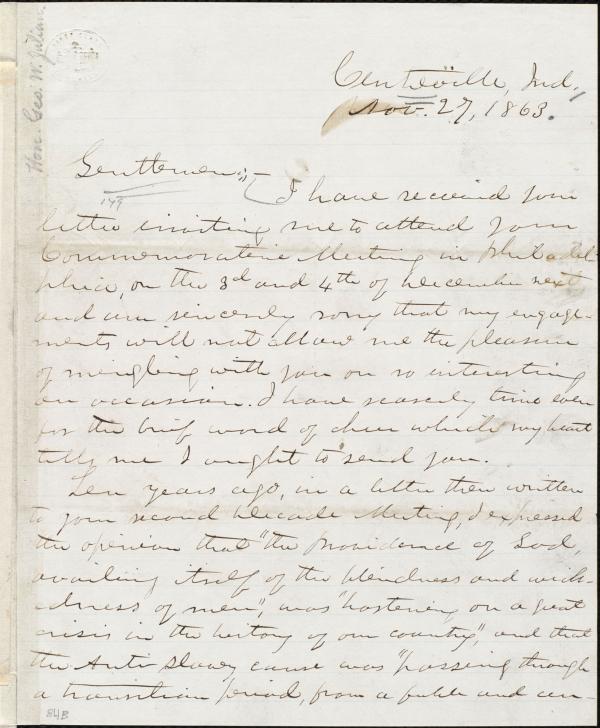 Hon. Geo. W. Julian.
Centreville, Ind.,
Nov. 27, 1863.
Gentlemen:-
149
I have received your
letter inviting me to attend your
Commemorative Meeting in Philadel-
phia, on the 3d and 4th of December next
and am sincerely sorry that my engage-
ments will not allow me the pleasure
of mingling with you on so interesting
an occasion. I have scarcely time even
for the brief word of cheer which my heart
tells me I ought to send you.
Ten years ago, in a letter then written
to your second Decade Meeting, I expressed
the opinion that "the Providence of God,
availing itself of the blindness and wick-
edness of men", was "hastening on a great
crisis in the history of our country", and that
the Anti Slavery cause was "passing through
a transition period, from a feeble and un-
84B